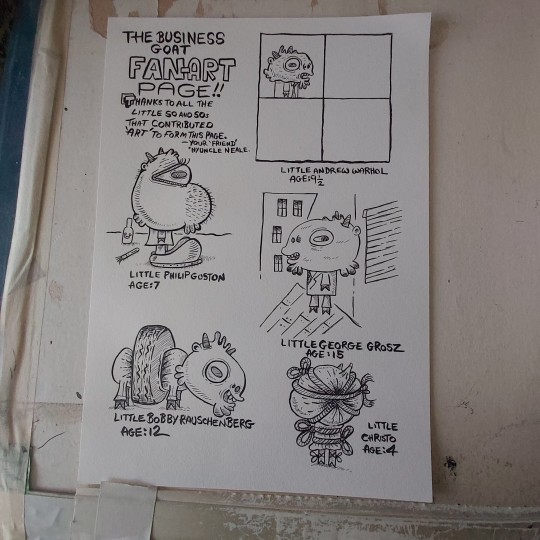 THE BUSINESS
GOAT
FAN-ART
PAGE!!
THANKS TO ALL THE
LITTLE SO AND SOs
THAT CONTRIBUTED
'ART' TO FORM THIS PAGE.
— YOUR 'FRIEND'
'NYUNCLE NEALE.
LITTLE ANDREW WARHOL
AGE: 9½
LITTLE PHILIP GUSTON
AGE: 7
LITTLE GEORGE GROSZ
AGE: 15
LITTLE BOBBY RAUSCHENBERG
AGE: 12
LITTLE
CHRISTO
AGE: 4